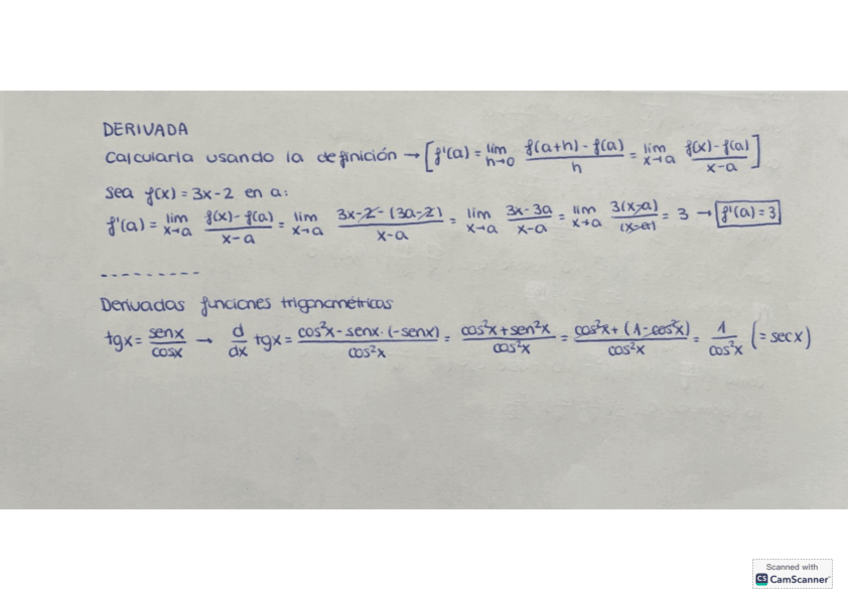 DERIVADA
Calcularla usando la definición → [f'(a) = lim h→0 f(a+h) - f(a) / h = lim x→a f(x) - f(a) / x-a]
Sea f(x) = 3x-2 en a:
f'(a) = lim x→a f(x) - f(a) / x-a = lim x→a 3x-2-(3a-2) / x-a = lim x→a 3x-3a / x-a = lim x→a 3(x-a) / (x-a) = 3 → f'(a) = 3
---------
Derivadas funciones trigonométricas
tgx = senx / cosx → d/dx tgx = cos²x - senx·(-senx) / cos²x = cos²x + sen²x / cos²x = cos²x + (1-cos²x) / cos²x = 1 / cos²x (= secx)
Scanned with
CS CamScanner